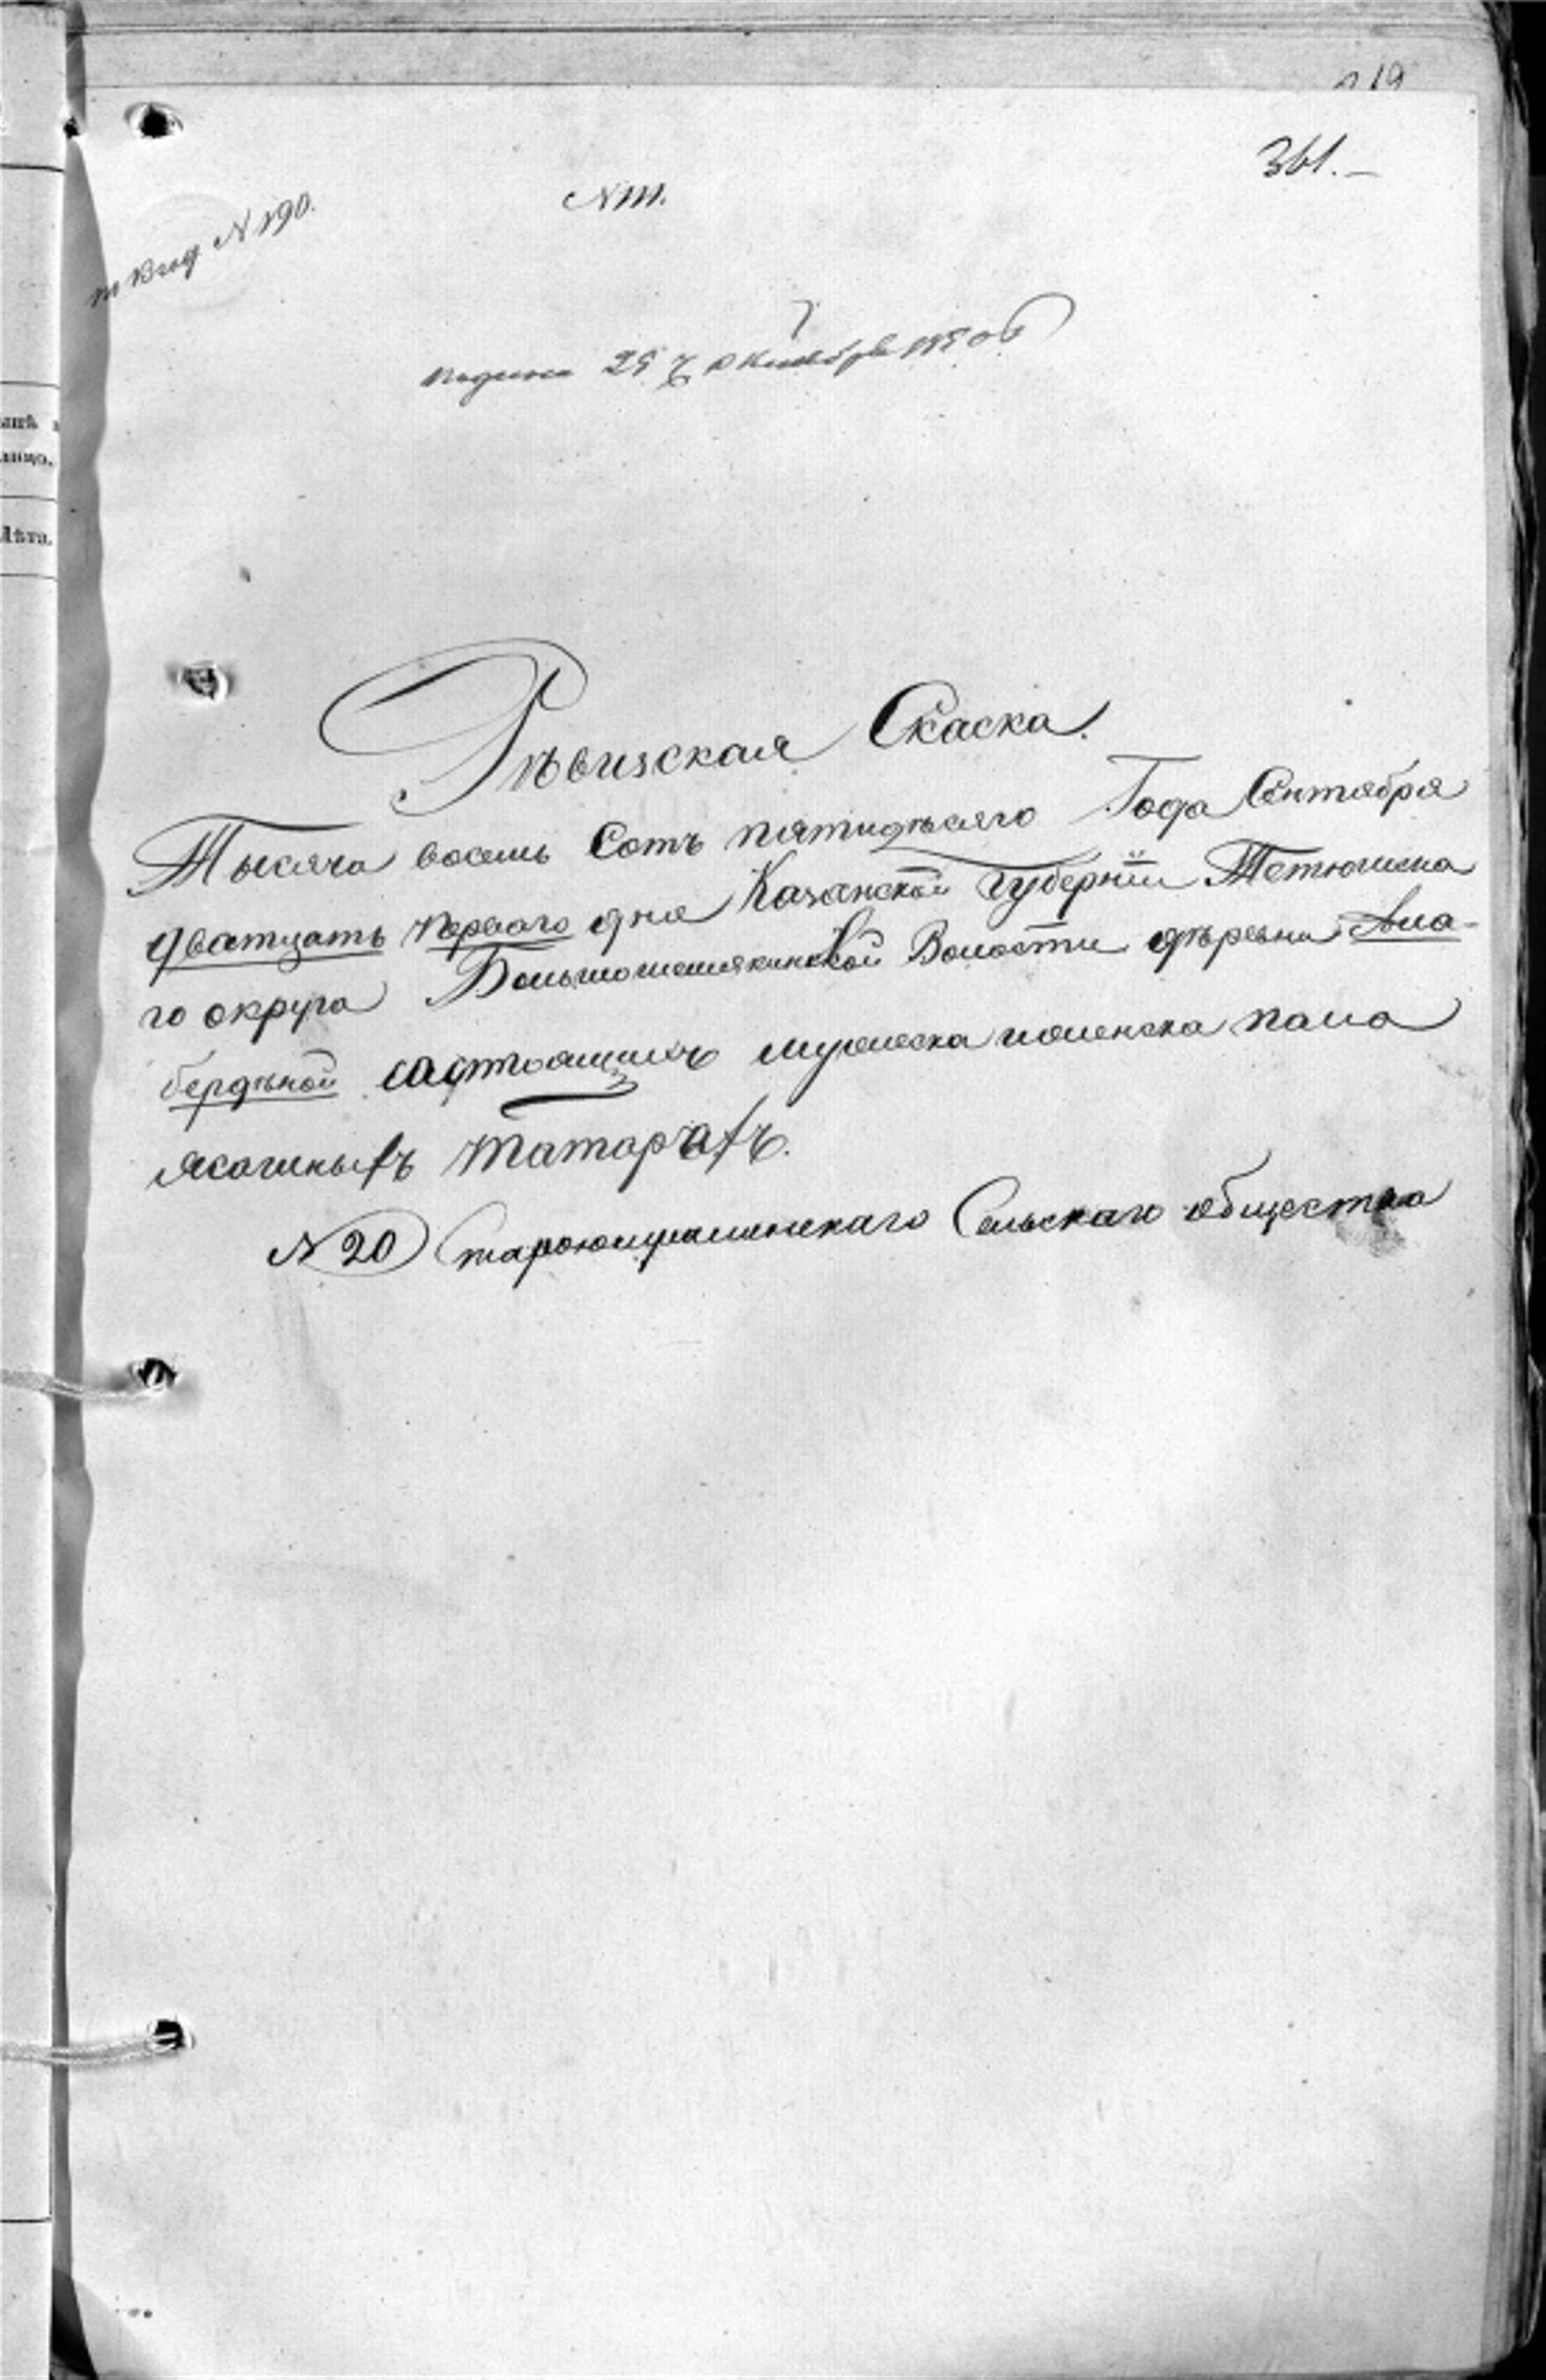 361.–
N 111.
N 190.
25 Октября 1850
Рѣвизская Скаска.
Тысяча восемь Сотъ пятидѣсяго Года Сентября
дватцать перваго дня Казанской Губернїи Тетюшска
го округа Большошемякинской Волости дѣревни Ала-
бердѣной састоящихъ мужеска иженска пола
ясашныхъ татарахъ.
N 20 Сельскаго общества